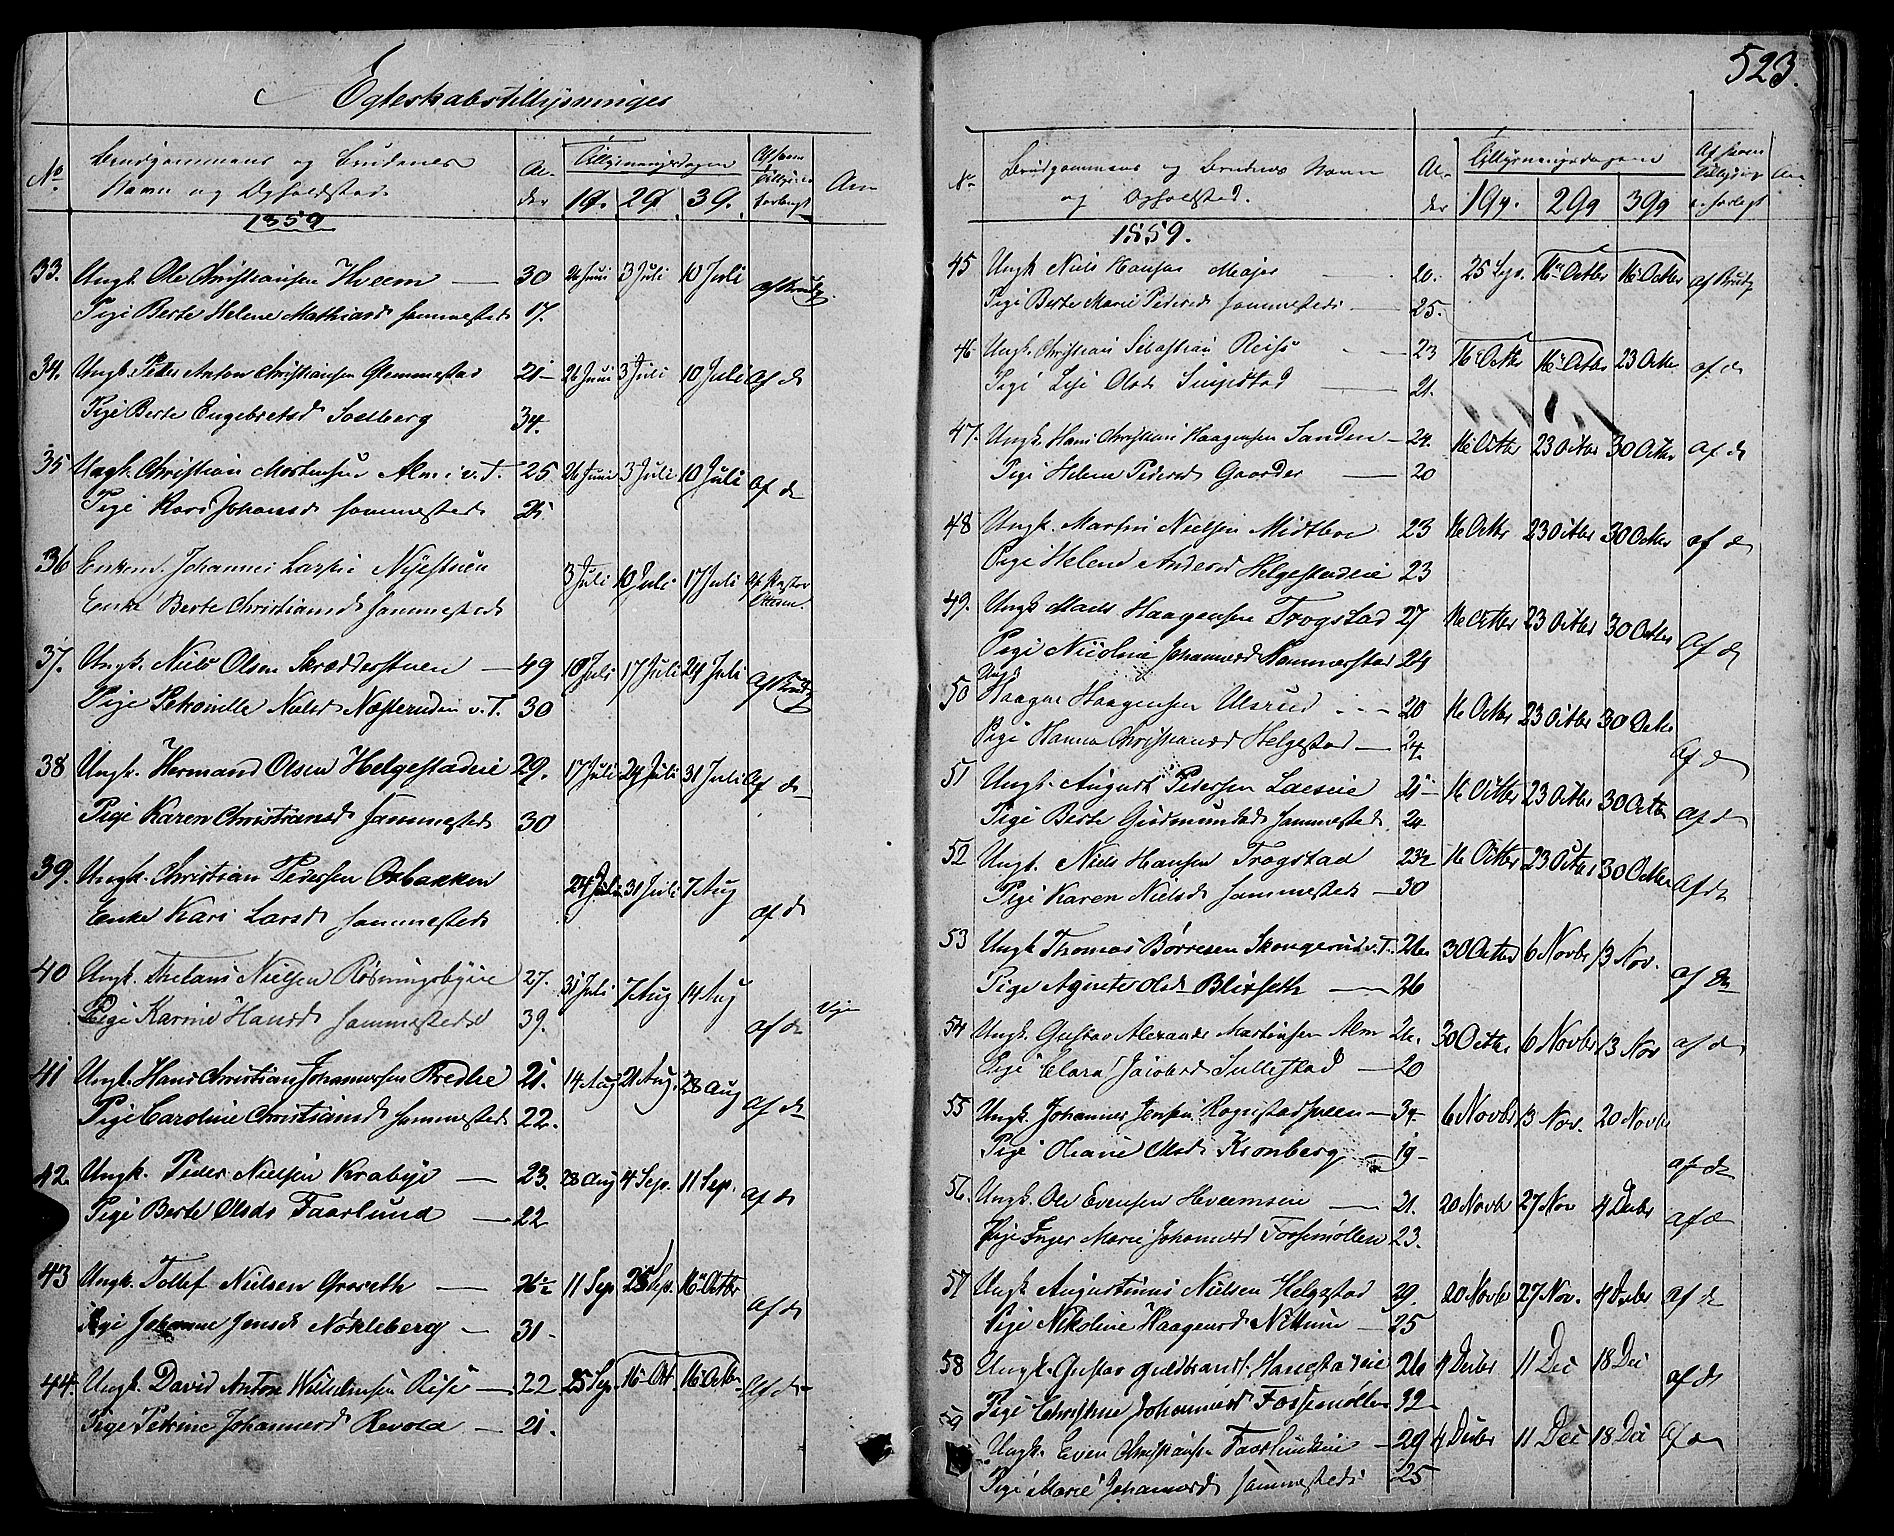 Egteskabstillysninger
No Brudgommens og Brudenes Navn og Opholdsted. Alder Tillysningsdagen 1 g. 2 g. 3 g. Af hvem Tillysning forlangt An
1859
33. Ungk. Ole Christiansen Hveem — 30 26 Juni 3 Juli 10 Juli af Brudg.
Pige Berte Helene Mathiasd sammesteds 17.
34. Ungk. Peder Anton Christiansen Glemmestad 21 26 Juni 3 Juli 10 Juli af do
Pige Berte Engebretsd Soelberg 34.
35 Ungk. Christian Mortensen Alm i v. T. 25 26 Juni 3 Juli 10 Juli af do
Pige Kari Johansd sammesteds 25
36 Enkem. Johannes Larsen 3 Juli 10 Juli 17 Juli Af Pastor
Enke Berte Christiansd sammesteds
37. Ungk. Niels Olsen Skrædderstuen — 49 10 Juli 17 Juli 24 Juli af Brudg
Pige Petronille Nielsd Næsteruden v. T. 30
38 Ungk. Hermand Olsen Helgestadeie 29. 17 Juli 24 Juli 31 Juli af do
Pige Karen Christiansd sammesteds 30
39. Ungk. Christian Pedersen Oxbakken 24 Juli 31 Juli 7 Aug af do
Enke Kari Larsd sammesteds
40 Ungk. Nielsen 27. 31 Juli 7 Aug 14 Aug af do
Pige Karine Hansd sammesteds 39.
41 Ungk. Hans Christian Johannessen Bredlie 21. 14 Aug 21 Aug. 28 Aug af do
Pige Caroline Christiansd sammesteds 22.
42. Ungk. Peder Nielsen Krabye — 23. 28 Aug 4 Sep. 11 Sep. af do
Pige Berte Olsdr Faarlund — 22
43 Ungk. Tollef Nielsen — 26½ 11 Sep 25 Sep. 16 Octbr af do
Pige Johanne Jensd Nøkleberg — 31.
44. Ungk. David Anton Wilhelmsen Riise — 22 25 Sep. 16 Oct. 16 Octbr af do
Pige Petrine Johannesd Revold — 21.
523.
No Brudgommens og Brudenes Navn og Opholdsted. Alder Tillysningsdagene 1 g. 2 gg 3 gg Af hvem Tillysning er forlagt An
1859.
45 Ungk Niels Hansen Majer 20. 25 Sep. 16 Octbr 16 Octbr af Brudg
Pige Berte Marie Pedersd sammesteds — 25.
46 Ungk. Christian Sebastian Reise — 23 16 Octbr 16 Octbr 23 Octbr af do
Pige Lise Olsd — 21.
47. Ungk. Hans Christian Haagensen Sanden — 24. 16 Octbr 23 Octbr 30 Octbr af do
Pige Helene Pedersd Gaarder — 20
48 Ungk. Martin Nielsen Midtboe 23 16 Octbr 23 Octbr 30 Octbr af do
Pige Helene Andersd Helgestadeie 23
49. Ungk Mads Haagensen Trogstad 27 16 Octbr 23 Octbr 30 Octbr af do
Pige Nicoline Johannesd Hammerstad 24
50 Ungk Haagen Haagensen Ulsrud 20 16 Octbr 23 Octbr 30 Octbr af do
Pige Hanna Christiansd Helgestad — 24.
51 Ungk. August Pedersen 25 16 Octbr 23 Octbr 30 Octbr af do
Pige Berte Gudmundsd sammesteds 24
52 Ungk. Niels Hansen Trogstad 23½ 16 Octbr 23 Octbr 30 Octbr af do
Pige Karen Nielsd sammesteds — 30
53 Ungk Thomas Børresen Skougerud v. T. 26. 30 Octbr 6 Novbr 13 Nov. af do
Pige Agnete Olsd Blixseth — 26
54 Ungk. Gustav Alexander Martinsen Alm 26. 30 Octbr 6 Novbr 13 Nov af do
Pige Clara Jacobsd Sullestad — 20
55 Ungk. Johannes Jensen — 34 6 Novbr 13 Nov. 20 Novbr af do
Pige Oliane Olsd Kronberg — 19
56. Ungk. Ole Evensen Hveemseie — 21. 20 Novbr 27 Nov 4 Decbr af do
Pige Inger Marie Johannesd Fossemøllen 23.
57 Ungk Augustinus Nielsen Helgestad 29. 20 Novbr 27 Nov. 4 Decbr af do
Pige Nikoline Haagensd Nettum — 25
58 Ungk. Gustav Guldbrands. 26 4 Decbr 11 Dec 18 Dec af do
Pige Christine Johannesd Fossemøllen 32
59 Ungk. Even Christiansen Faarlundeie — 29 4 Decbr 11 Dec 18 Dec af do
Pige Marie Johannesd sammesteds 25